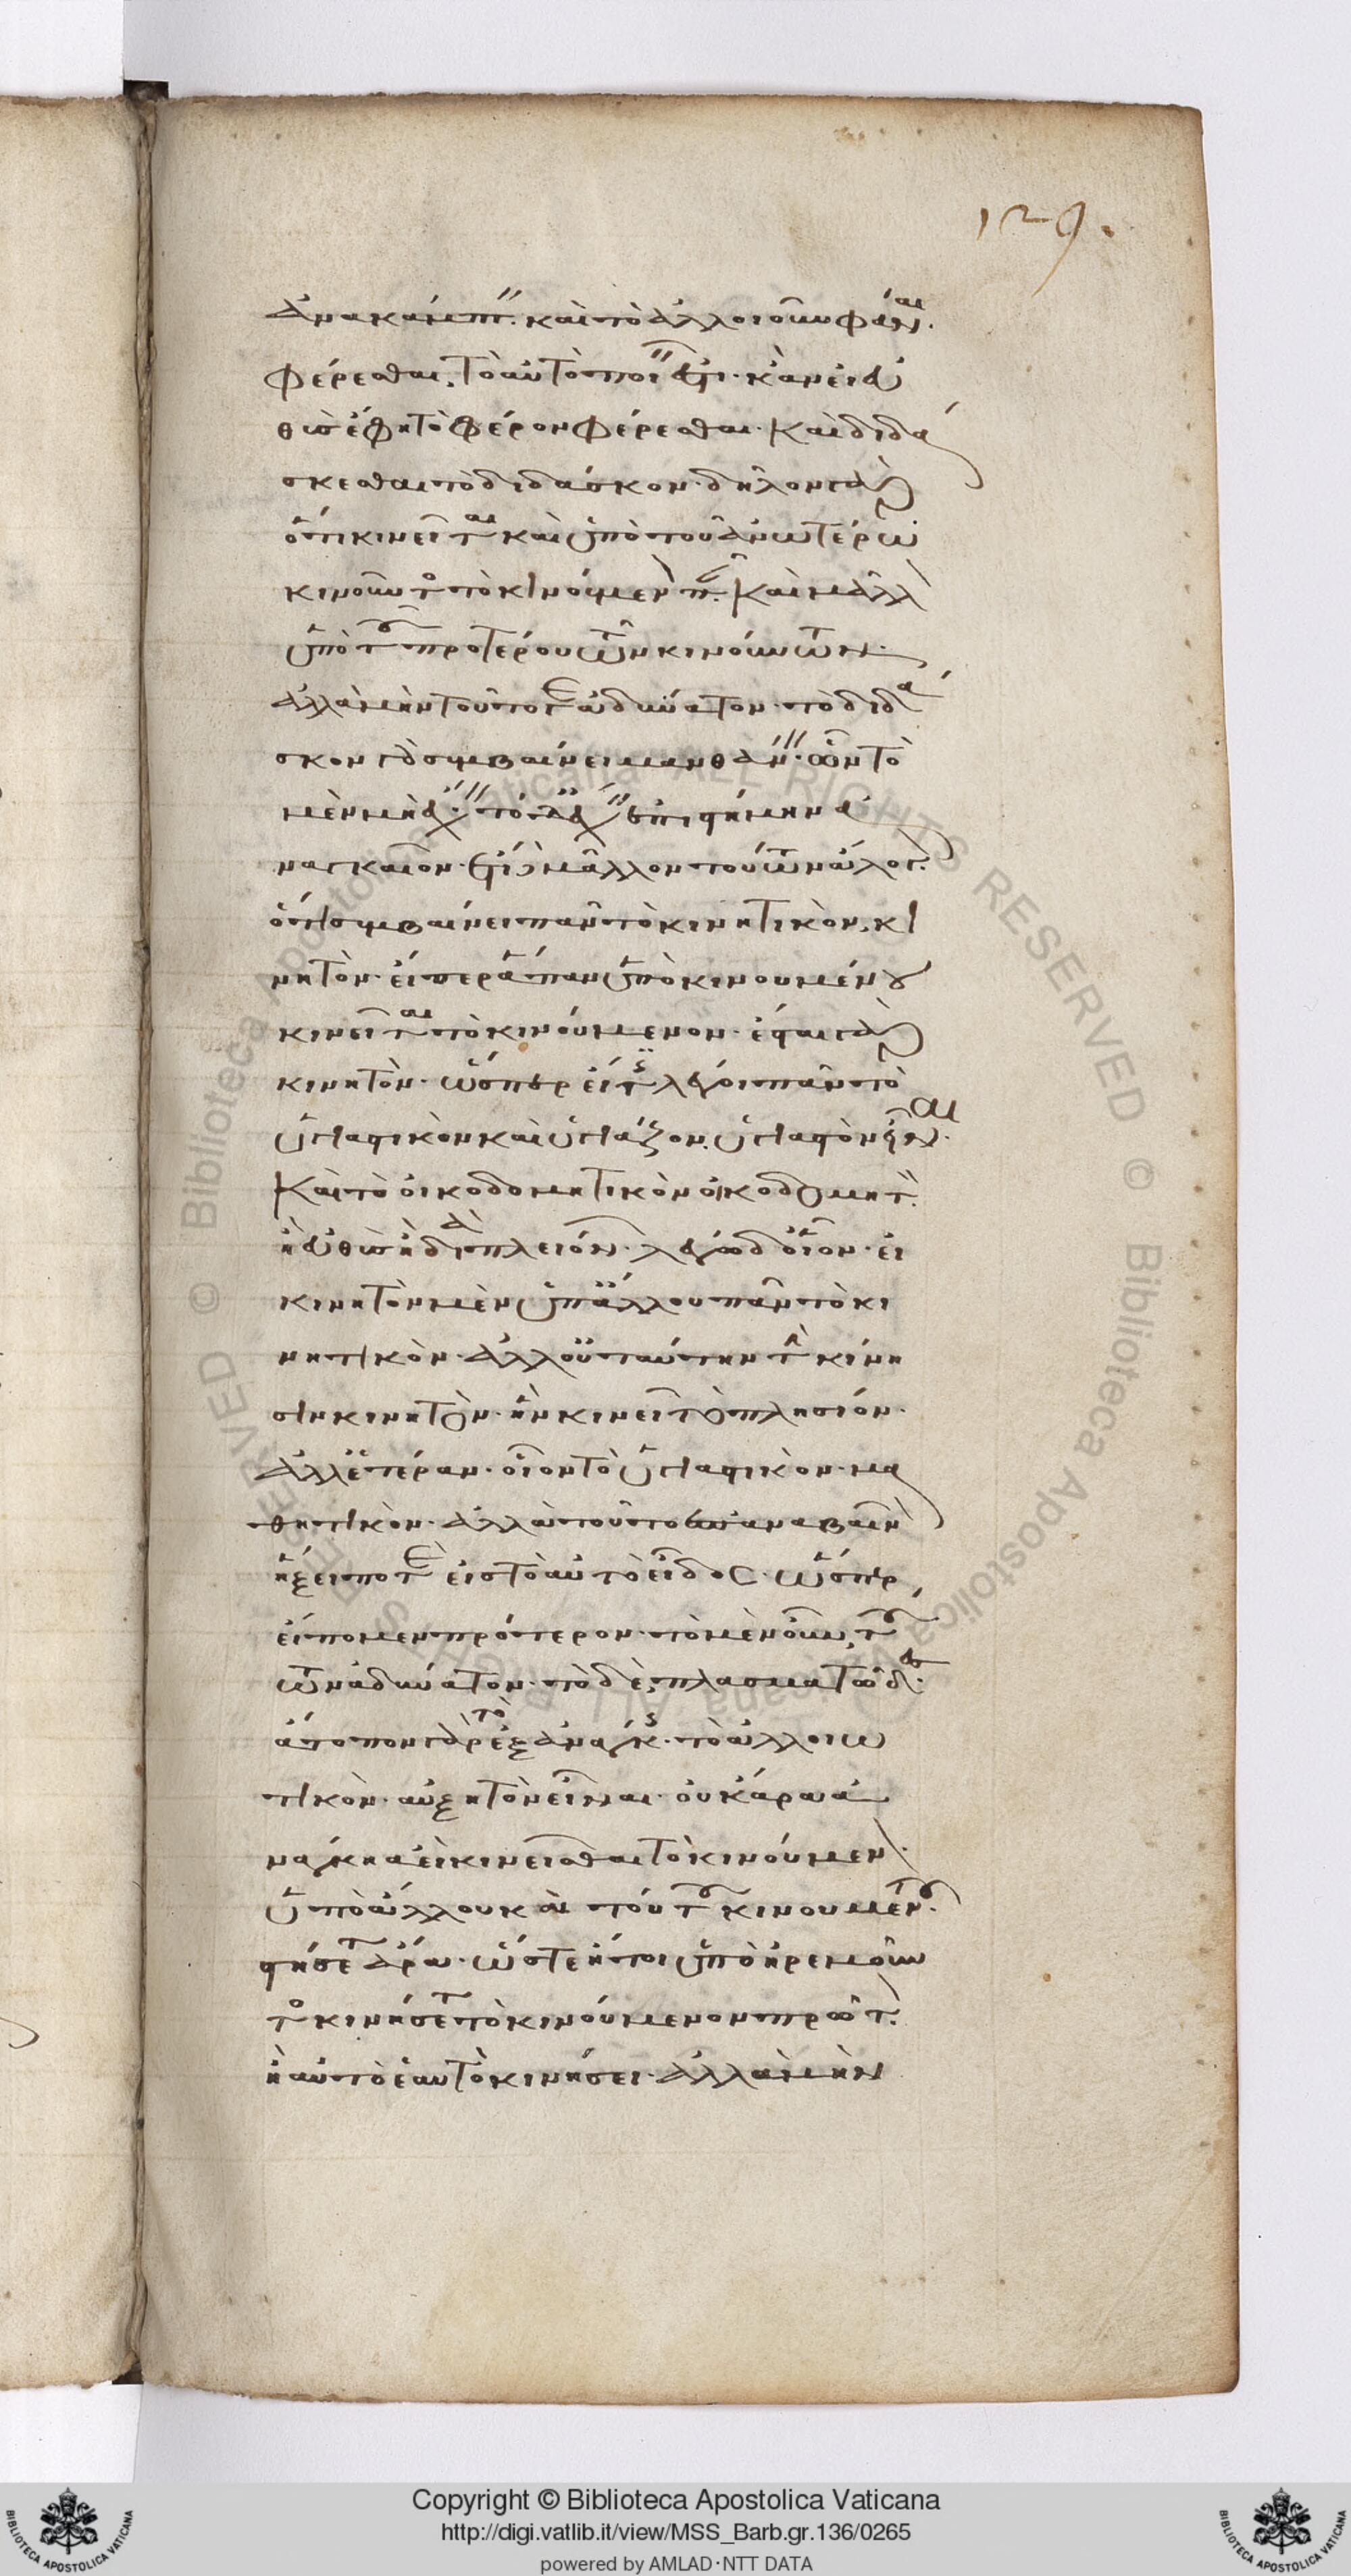 129.
ἀνακάμπτειν· καὶ τὸ ἀλλοιοῦν φάναι·
φέρεσθαι, τὸ αὐτὸ ποιεῖν ἐστι· κἂν εἰ εὐ
θὺς ἔφη τὸ φέρον φέρεσθαι· καὶ διδά
σκεσθαι τὸ διδάσκον· δῆλον γὰρ
ὅτι κινεῖται καὶ ὑπὸ τοῦ ἀνωτέρω
κινοῦντος τὸ κινούμενον πᾶν· καὶ μᾶλλον
ὑπὸ τοῦ προτέρου τῶν κινούντων·
ἀλλὰ μὴν τοῦτό γε ἀδύνατον· τὸ διδά
σκον γὰρ συμβαίνει μανθάνειν· ὧν τὸ
μὲν μὴ ἔχειν· τὸ δὲ ἔχειν ἐπιστήμην ἀ
ναγκαῖον· ἔτι δὲ μᾶλλον τούτων ἄλογον·
ὅτι συμβαίνει πᾶν τὸ κινητικὸν, κι
νητὸν· εἴπερ ἅπαν ὑπὸ κινουμένου
κινεῖται τὸ κινούμενον· ἔσται γὰρ
κινητὸν· ὥσπερ εἴ τις λέγοι πᾶν τὸ
ὑγιαστικὸν καὶ ὑγιάζον, ὑγιαστὸν εἶναι·
καὶ τὸ οἰκοδομητικὸν οἰκοδομητὸν·
ἢ εὐθὺς ἢ διὰ πλειόνων· λέγω δ οἷον· εἰ
κινητὸν μὲν ὑπ ἄλλου πᾶν τὸ κι
νητικὸν· ἀλλ οὐ ταύτην τὴν κίνη
σιν κινητὸν· ἣν κινεῖ τὸ πλησίον·
ἀλλ ἑτέραν· οἷον τὸ ὑγιαστικὸν· μα
θητικὸν· ἀλλὰ τοῦτο ἐπαναβαῖνον
ἥξει ποτὲ εἰς τὸ αὐτὸ εἶδος· ὥσπερ
εἴπομεν πρότερον· τὸ μὲν οὖν, τού
των ἀδύνατον· τὸ δὲ, πλασματῶδες·
ἄτοπον γὰρ τὸ ἐξ ἀνάγκης· τὸ ἀλλοιω
τικὸν· αὐξητὸν εἶναι· οὐκ ἄρα ἀ
νάγκη ἀεὶ κινεῖσθαι τὸ κινούμενον·
ὑπὸ ἄλλου καὶ τούτου κινουμένου·
στήσεται ἄρα· ὥστε ἤτοι ὑπὸ ἠρεμοῦν
τος κινήσεται τὸ κινούμενον πρῶτον·
ἢ αὐτὸ ἑαυτὸ κινήσει· ἀλλὰ μὴν
Copyright © Biblioteca Apostolica Vaticana
http://digi.vatlib.it/view/MSS_Barb.gr.136/0265
powered by AMLAD·NTT DATA